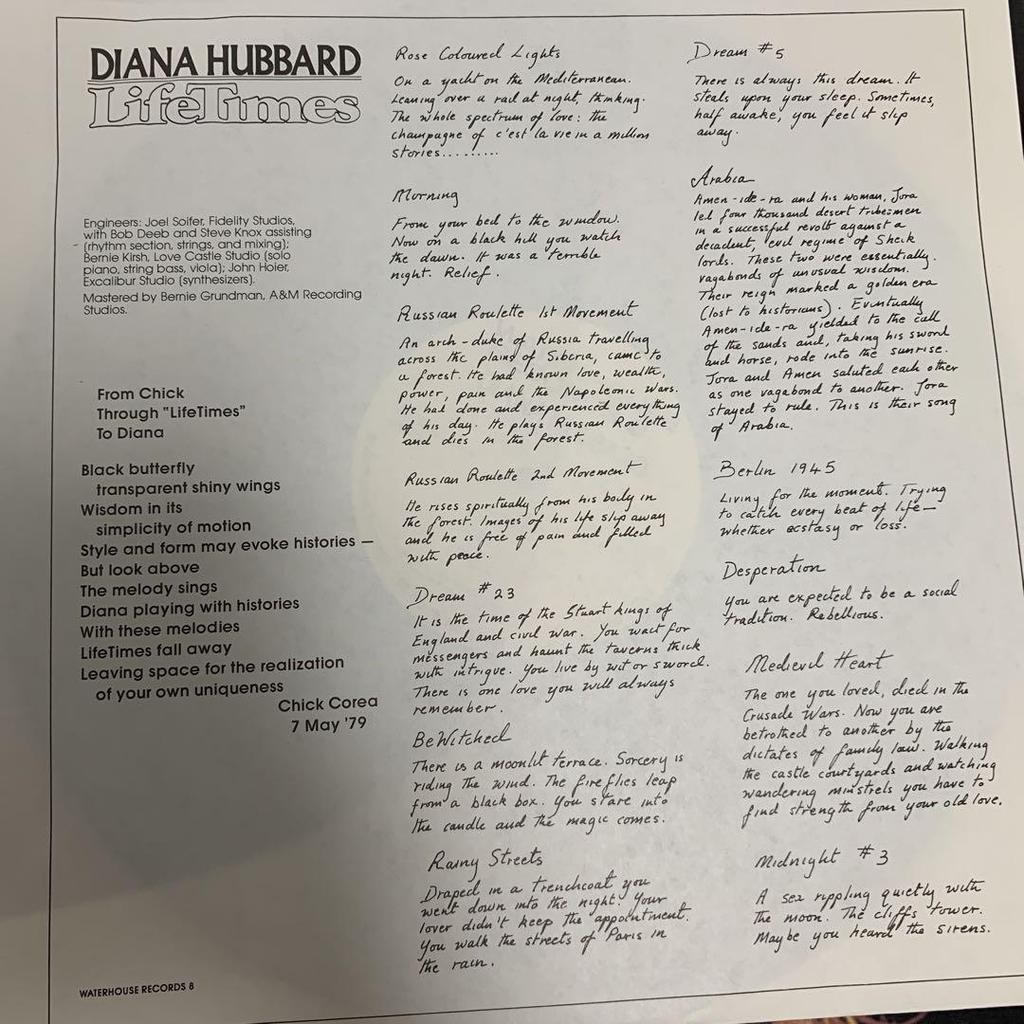 DIANA HUBBARD
LifeTimes
Engineers: Joel Soifer, Fidelity Studios,
with Bob Deeb and Steve Knox assisting
(rhythm section, strings, and mixing);
Bernie Kirsh, Love Castle Studio (solo
piano, string bass, viola); John Hoier,
Excalibur Studio (synthesizers).
Mastered by Bernie Grundman, A&M Recording
Studios.
From Chick
Through "LifeTimes"
To Diana
Black butterfly
transparent shiny wings
Wisdom in its
simplicity of motion
Style and form may evoke histories —
But look above
The melody sings
Diana playing with histories
With these melodies
LifeTimes fall away
Leaving space for the realization
of your own uniqueness
Chick Corea
7 May '79
WATERHOUSE RECORDS 8
Rose Coloured Lights
On a yacht on the Mediterranean.
Leaning over a rail at night, thinking.
The whole spectrum of love: the
champagne of c'est la vie in a million
stories.........
Morning
From your bed to the window.
Now on a black hill you watch
the dawn. It was a terrible
night. Relief.
Russian Roulette 1st Movement
An arch-duke of Russia travelling
across the plains of Siberia, came to
a forest. He had known love, wealth,
power, pain and the Napoleonic Wars.
He had done and experienced everything
of his day. He plays Russian Roulette
and dies in the forest.
Russian Roulette 2nd Movement
He rises spiritually from his body in
the forest. Images of his life slip away
and he is free of pain and filled
with peace.
Dream #23
It is the time of the Stuart kings of
England and civil war. You wait for
messengers and haunt the taverns thick
with intrigue. You live by wit or sword.
There is one love you will always
remember.
BeWitched
There is a moonlit terrace. Sorcery is
riding the wind. The fireflies leap
from a black box. You stare into
the candle and the magic comes.
Rainy Streets
Draped in a trenchcoat you
went down into the night. Your
lover didn't keep the appointment.
You walk the streets of Paris in
the rain.
Dream #5
There is always this dream. It
steals upon your sleep. Sometimes,
half awake, you feel it slip
away.
Arabia
Amen-ide-ra and his woman, Jora
led four thousand desert tribesmen
in a successful revolt against a
decadent, evil regime of Sheik
lords. These two were essentially
vagabonds of unusual wisdom.
Their reign marked a golden era
(lost to historians). Eventually
Amen-ide-ra yielded to the call
of the sands and, taking his sword
and horse, rode into the sunrise.
Jora and Amen saluted each other
as one vagabond to another. Jora
stayed to rule. This is their song
of Arabia.
Berlin 1945
Living for the moment. Trying
to catch every beat of life—
whether ecstasy or loss.
Desperation
You are expected to be a social
tradition. Rebellious.
Medieval Heart
The one you loved, died in the
Crusade Wars. Now you are
betrothed to another by the
dictates of family law. Walking
the castle courtyards and watching
wandering minstrels you have to
find strength from your old love.
Midnight #3
A sea rippling quietly with
the moon. The cliffs tower.
Maybe you heard the sirens.